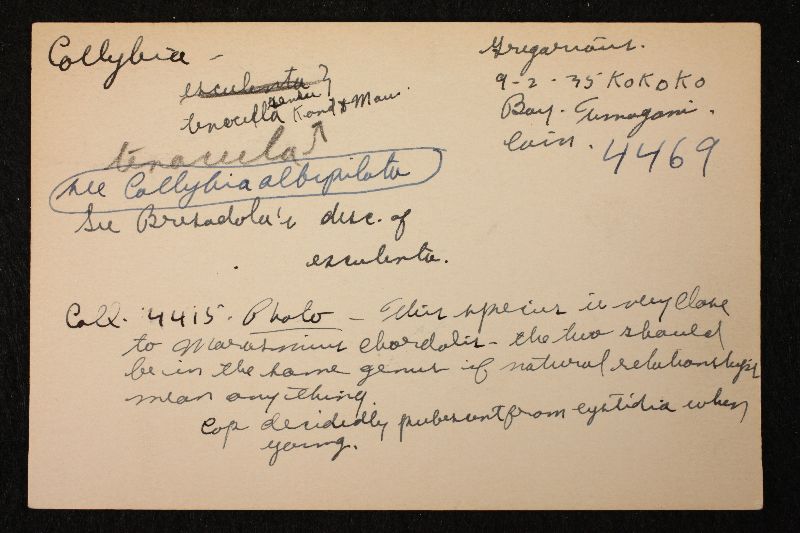 Collybia -
esculenta ?
tenacella sensu Konr & Mau.
tenacula
see Collybia albipilata
See Bresadola's disc. of
esculenta.
Gregarious.
9-2-35 KOKOKO
Bay. Temagami.
Cain. 4469
Coll. 4415. Photo - This species is very close
to Marasmius chordalis - the two should
be in the same genus if natural relationships
mean anything.
Cap decidedly pubescent from cystidia when
young.